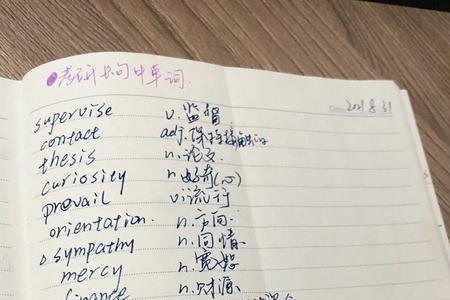 ●考研长句中单词.
Date 2021.8.31
supervise v.监督
contact adj.保持接触
thesis n.论文.
curiosity n.好奇(心)
prevail vi流行
orientation. n.方向.
sympathy n.同情.
mercy n.宽恕
finance n.财源